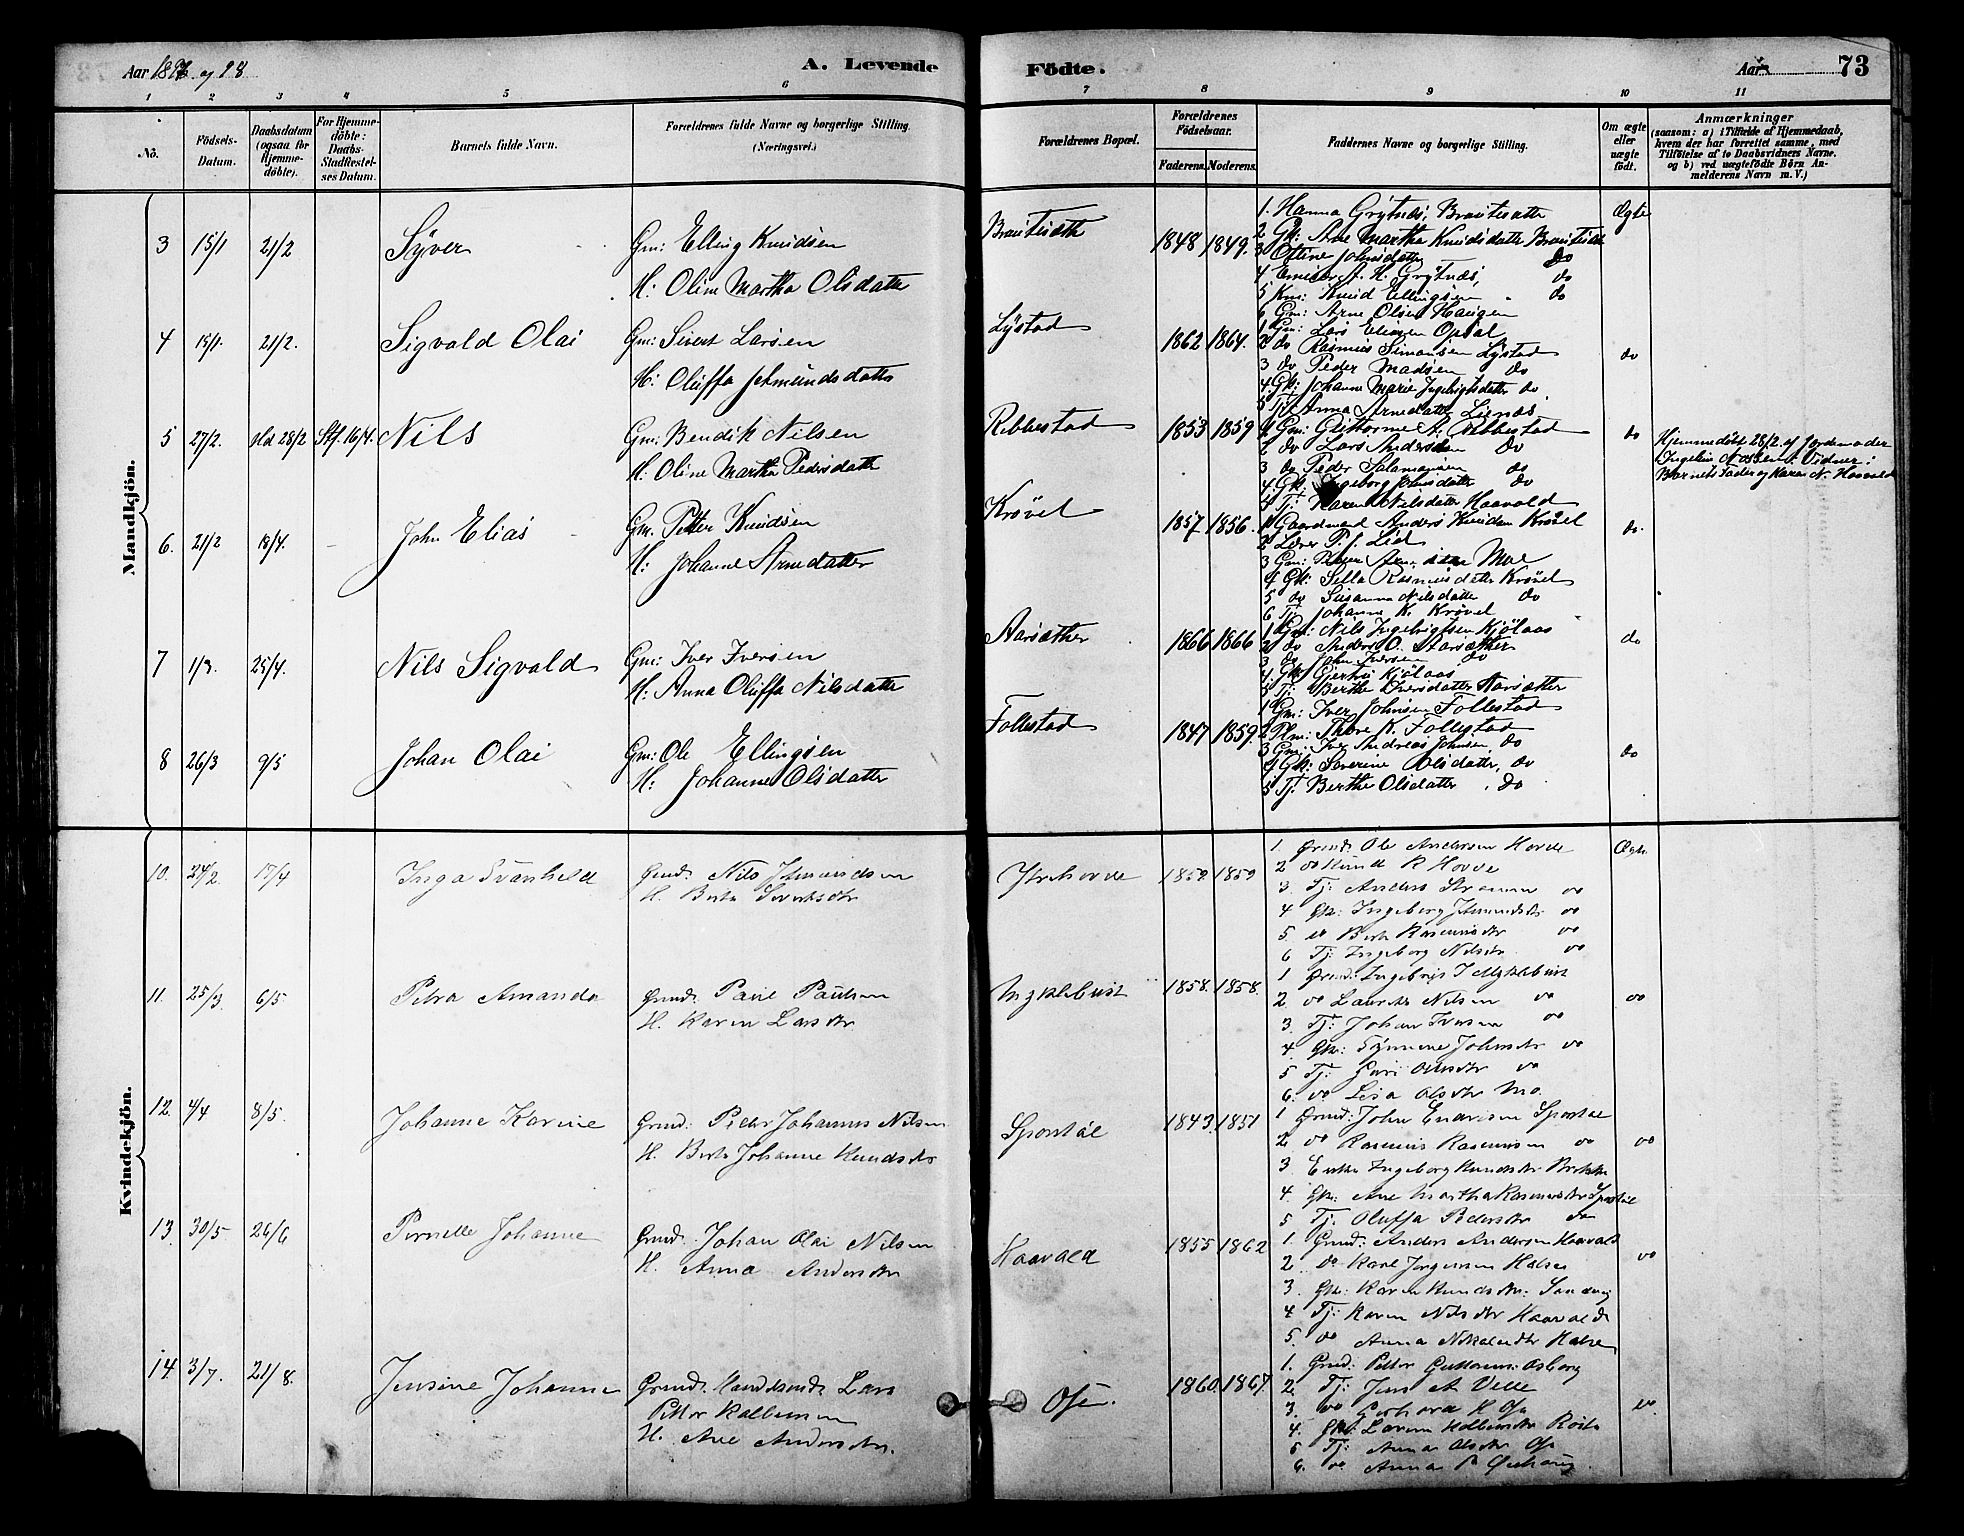 Aar 18 og 98
A. Levende Födte.
Aar 73
1 2 3 4 5 6 7 8 9 10 11
No.
Födsels-Datum.
Daabsdatum (ogsaa for Hjemme-döbte).
For Hjemme-döbte: Daabs-Stadfæstel-ses Datum.
Barnets fulde Navn.
Forældrenes fulde Navne og borgerlige Stilling. (Næringsvei.)
Forældrenes Bopæl.
Forældrenes Födselsaar.
Faderens. Moderens.
Faddernes Navne og borgerlige Stilling.
Om ægte eller uægte födt.
Anmærkninger (saasom: a) i Tilfælde af Hjemmedaab, hvem der har forrettet samme, med Tilföielse af to Daabsvidners Navne. og b) ved uægtefödte Börn An-melderens Navn m. V.)
Mandkjön.
3 15/1 21/2 Syver Gm: Elling Knudsen 1848 1849. Ægte
H: Oline Martha Olsdatter
1. Hanna Grytnæs,
2 Gk: Ane Martha Knudsdatter
3 Oline Johnsdatter do
4 A. H. Grytnæs, do
5 Km: Knud Ellingsen do
6 Gm: Arne Olsen Haugen
4 15/1. 21/2. Sigvald Olai Gm: Sivert Larsen Lystad 1862 1864. do
H: Oluffa Jetmundsdatter
1 Gm: Lars Opsal
2 do Rasmus Simonsen Lystad
3 do Peder Madsen do
4. Gk: Johanne Marie Ingebrigtsdatter do
5 Tj: Anna Arnedatter Lienæs
5 27/2. 28/2 Stf. 16/4. Nils Gm: Bendik Nilsen Ribbestad 1853 1859 do
H: Oline Martha Pedersdatter
1 Gm: Guttorm A. Ribbestad
2 do Lars Andersen do
3 do Peder Salamonsen do
4 Gk: Ingeborg Johnsdatter do
5 Tj: Karen Nilsdatter Haavold
Hjemmedöbt 28/2 af Jordemoder
Vidner:
Barnets Fader og Karen N. Haavold
6. 21/2 18/4. John Elias Gm. Petter Knudsen Krøvel 1857 1856. do.
H: Johanne Arnedatter
1 Gaardmand Anders Knudsen Krøvel
2 Lærer P. J. Lid
3 Gm: Moe
4 Gk: Sella Rasmusdatter Krøvel
5 do Susanna Nilsdatter do
6 Tj: Johanne K. Krøvel
7 1/3. 25/4. Nils Sigvald Gm: Iver Iversen Aarsæther 1866 1866 do
H: Anna Oluffa Nilsdatter
1 Gm: Nils Ingebrigtsen Kjölaas
2 do Anders O. Aarsæther
3 do John Iversen do
4. Gk: Gjertrü Kjölaas
5 Tj: Berthe Iversdatter Aarsæther
8 26/3 9/5 Johan Olai Gm: Ole Ellingsen Follestad 1847 1859. do
H: Johanne Olsdatter
1 Gm: Iver Johnsen Follestad
2 Plm: Thore K. Follestad
3 Gm: Iver Andreas Johnsen, do
4 Gk: Severine Olsdatter, do
5 Tj. Berthe Olsdatter do
Kvindekjön.
10. 24/2. 17/4 Inga Svanhild Grmd: Nils Jetmundsen Ytrehovde 1859 1859 Ægte
H. Berte Sivertsdtr
1. Grmd: Ole Andersen Hovde
2 do Knud R Hovde
3. Tj: Anders do
4 Gk: Ingeborg Jetmundsdtr do
5. do Berte Rasmusdtr do
6 Tj: Ingeborg Nilsdtr do
11. 25/3. 6/5 Petra Amanda Grmd: Paul Paulsen Myklebust 1858. 1858. do
H. Karen Larsdtr
1 Grmd: Ingebrigt J Myklebust
2. do Laurits Nilsen do
3. Tj: Johan Iversen do
4. Gk: Johnsdtr do
5 Tj: Guri Olsdtr do
6. do Lisa Olsdtr Mo.
12. 4/4 8/5. Johanne Karine Grmd: Peder Johannes Nilsen 1843. 1851 do
H. Berte Johanne Knudsdtr
1 Grmd: John Endresen
2. do Rasmus Rasmussen do
3. Enke Ingeborg Knudsdtr
4. Gk: Ane Martha Rasmusdtr
5 Tj. Oluffa Pedersdtr do
13. 30/5 26/6 Pernelle Johanne Grmd: Johan Olai Nilsen Haavold 1855 1862 do
H. Anna Andersdtr
1. Grmd: Anders Andersen Haavold
2. do Karl Jörgensen Halse
3. Gk: Karen Knudsdtr: Sandvig
4 Tj: Karen Nilsdtr Haavold
5. do Anna Halse
14. 3/7. 21/8. Jensine Johanne Grmd: Lars Osen. 1860. 1867. do.
Petter
H. Ane Andersdtr.
1. Grmd: Petter Guttormsen Aasberg
2. Tj: Jens A Velle
3. do Gerhard K Ose
4. Gk:
5 Tj: Anna Olsdtr Ose
6. do Anna P